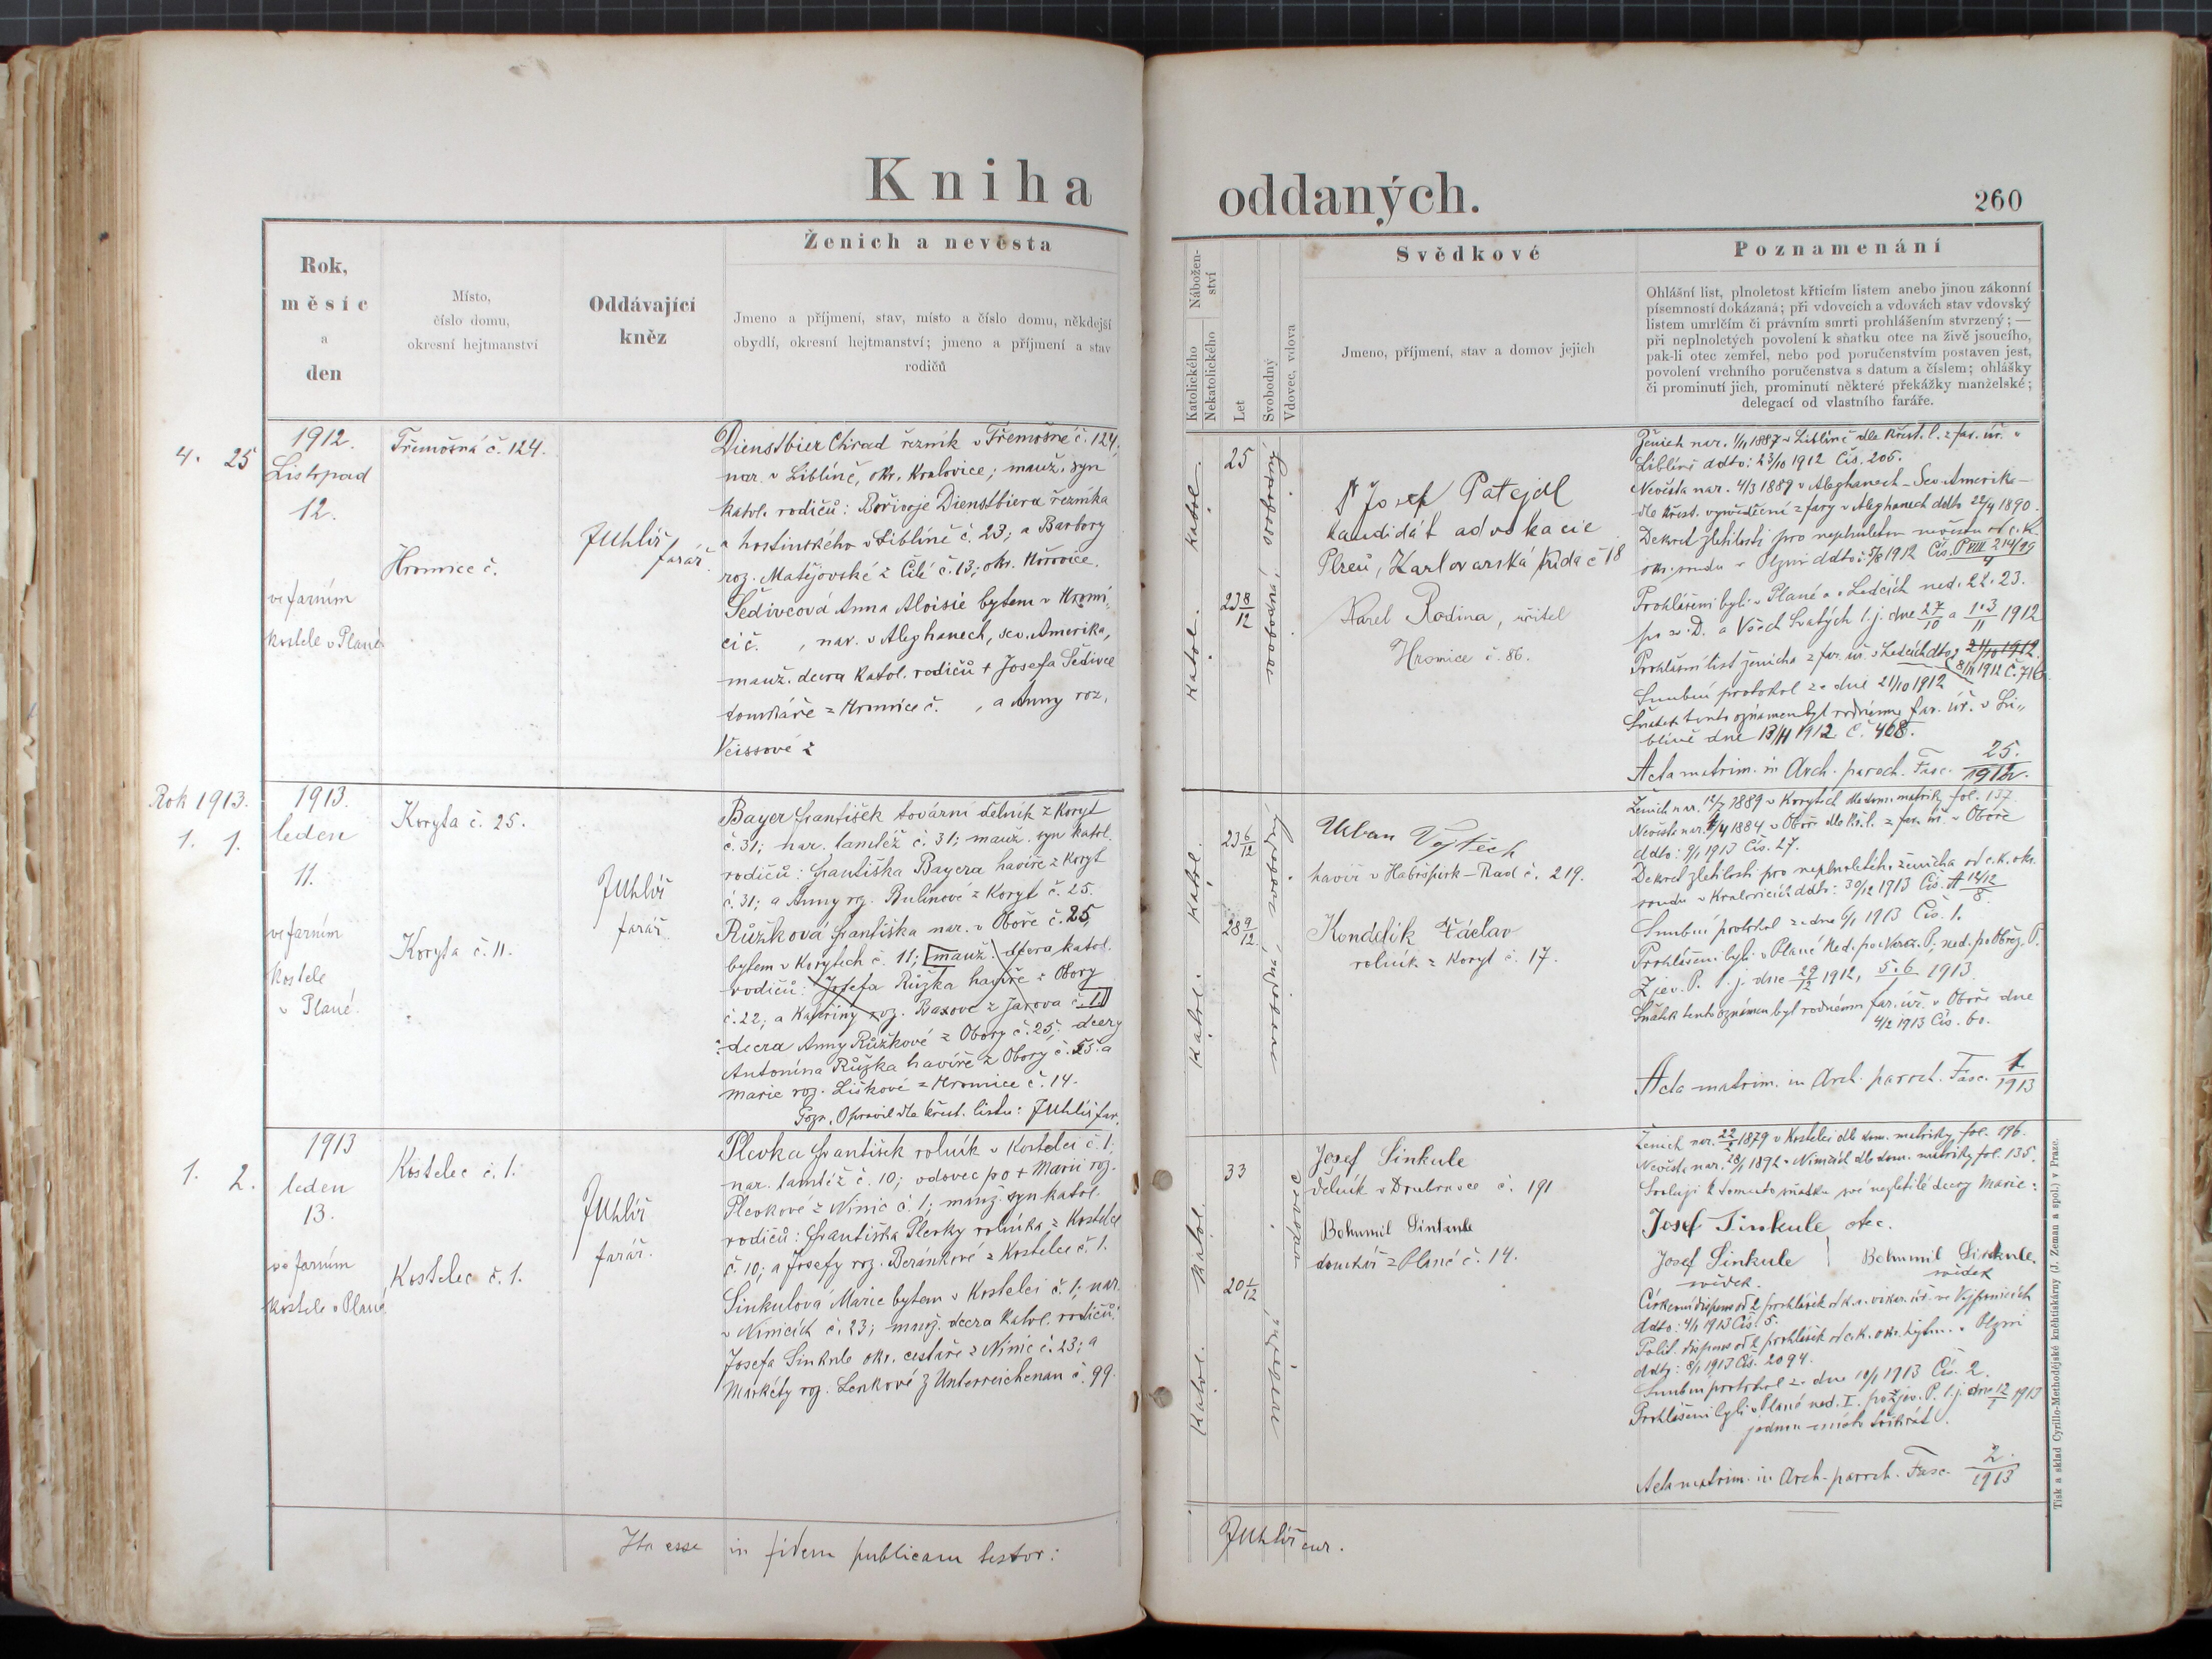 Kniha
oddaných.
260
Rok,
měsíc
a
den
Místo,
číslo domu,
okresní hejtmanství
Oddávající
kněz
Ženich a nevěsta
Jmeno a příjmení, stav, místo a číslo domu, někdejší
obydlí, okresní hejtmanství; jmeno a příjmení a stav
rodičů
Nábožen-
ství
Katolického
Nekatolického
Let
Svobodný
Vdovec, vdova
Svědkové
Jmeno, příjmení, stav a domov jejich
Poznamenání
Ohlášní list, plnoletost křticím listem anebo jinou zákonní
písemností dokázaná; při vdovcích a vdovách stav vdovský
listem umrlčím či právním smrti prohlášením stvrzený; —
při neplnoletých povolení k sňatku otce na živě jsoucího,
pak-li otec zemřel, nebo pod poručenstvím postaven jest,
povolení vrchního poručenstva s datum a číslem; ohlášky
či prominutí jich, prominutí některé překážky manželské;
delegací od vlastního faráře.
4. 25
1912.
Listopad
12.
ve farním
kostele v Plané
Třemošná č. 124.
Hromnice č.
JUhlíř
farář.
Dienstbier Ctirad řezník v Třemošné č. 124,
nar. v Liblíně, okr. Kralovice; manž. syn
katol. rodičů: Bořivoje Dienstbiera řezníka
a hostinského v Liblíně č. 23; a Barbory
roz. Matějovské z Cílé č. 13; okr. Hořovice.
Šedivcová Anna Aloisie bytem v Hromi-
ci č. , nar. v Aleghanech, sev. Amerika,
manž. dcera katol. rodičů + Josefa Šedivce
domkáře z Hromnice č. , a Anny roz.
Veissové z
Katol.
Katol.
25
23 8/12
svobodný,
svobodná
Dr Josef Patejdl
kandidát advokacie
Plzeň, Karlovarská třída č 18
Karel Rodina, učitel
Hromice č. 86.
Ženich nar. 1/11 1887 v Liblíně dle křest. l. z far. úř. v
Liblíně ddto: 23/10 1912 Čís. 205.
Nevěsta nar. 4/3 1889 v Aleghanech – Sev. Amerika –
dle křest. vysvědčení z fary v Aleghanech ddto 22/4 1890.
Dekret zletilosti pro neplnoletou nevěstu od c. k.
okr. soudu v Plzni ddto: 5/8 1912 Čís. P VIII 214/99
Prohlášeni byli v Plané a v Ledcích ned. 22. 23.
po sv. D. a Všech Svatých t. j. dne 27/10 a 1. 3/11 1912
Prohlášní list ženicha z far. úř. v Ledcích ddto: 24/10 1912.
8/11 1912 Č. 716
Snubní protokol ze dne 21/10 1912
Sňatek tento oznámen byl rodnému far. úř. v Li-
blíně dne 13/11 1912 Č. 468.
Acta matrim. in Arch. paroch. Fasc. 25./1912.
Rok 1913.
1. 1.
1913.
leden
11.
ve farním
kostele
v Plané.
Koryta č. 25.
Koryta č. 11.
JUhlíř
farář
Bayer František tovární dělník z Koryt
č. 31; nar. tamtéž č. 31; manž. syn katol.
rodičů: Františka Bayera havíře z Koryt
č. 31; a Anny roz. Bulínové z Koryt č. 25.
Růžková Františka nar. v Oboře č. 25,
bytem v Korytech č. 11; manž. dcera katol.
rodičů: Josefa Růžka havíře z Obory
č. 22; a Kateřiny roz. Baxové z Jarova č. 1.
: dcera Anny Růžkové z Obory č. 25; dcery
Antonína Růžka havíře z Obory č. 25. a
Marie roz. Liškové z Hromnice č. 14.
Pozn. Opravil dle křest. listu: JUhlíř far.
Katol.
Katol.
23 6/12
28 9/12
svobodný,
svobodná
Urban Vojtěch
havíř v Habršpirk – Rad č. 219.
Kondelík Václav
rolník z Koryt č. 17.
Ženich nar. 12/7 1889 v Korytech dle dom. matriky fol. 137.
Nevěsta nar. 4/4 1884 v Oboře dle kř. l. z far. úř. v Oboře
ddto: 9/1 1913 Čís. 27.
Dekret zletilosti pro neplnoletého ženicha od c. k. okr.
soudu v Kralovicích ddto: 30/12 1913 Čís. A 12/12 8
Snubní protokol ze dne 6/1 1913 Čís. 1.
Prohlášeni byli v Plané Ned. po Naroz. P. ned. po Obřez. P.
Zjev. P. t. j. dne 29/12 1912, 5. 6/1 1913.
Sňatek tento oznámen byl rodnému far. úř. v Oboře dne
4/2 1913 Čís. 60.
Acta matrim. in Arch. paroch. Fasc. 1/1913
1. 2.
1913
leden
13.
ve farním
kostele v Plané
Kostelec č. 1.
Kostelec č. 1.
JUhlíř
farář.
Plevka František rolník v Kostelci č 1;
nar. tamtéž č. 10; vdovec po + Marii roz.
Plevkové z Ninic č. 1; manž. syn katol.
rodičů: Františka Plevky rolníka z Kostelce
č. 10; a Josefy roz. Beránkové z Kostelce č. 1.
Sinkulová Marie bytem v Kostelci č. 1; nar.
v Ninicích č. 23; manž. dcera katol. rodičů:
Josefa Sinkule okr. cestáře z Ninic č. 23; a
Markéty roz. Lenkové z Unterreichenau č. 99.
Katol.
Katol.
33
20 1/12
vdovec,
svobodná
Josef Sinkule
dělník v Doubravce č. 191
Bohumil Sinkule
domkář z Plané č. 14.
Ženich nar. 22/2 1879 v Kostelci dle dom. matriky fol. 196.
Nevěsta nar. 28/1 1892 v Ninicích dle dom. matriky fol. 135.
Svoluji k tomuto sňatku své nezletilé dcery Marie:
Josef Sinkule otec.
Josef Sinkule
svědek.
Bohumil Sinkule.
svědek
Církevní dispens od 2 prohlášek od k. a. vikar. úř. ve Vejprnicích
ddto: 4/1 1913 Čís. 5.
Polit. dispens od 2 prohlášek od c. k. okr. hejtm. v Plzni
ddto: 8/1 1913 Čís. 2094.
Snubní protokol ze dne 10/1 1913 Čís. 2.
Prohlášeni byli v Plané ned. I. po Zjev. P. t. j. dne 12/1 1913
jednou za třikrát.
Acta matrim. in Arch. paroch. Fasc. 2/1913
Ita esse in fidem publicam testor:
JUhlíř cur.
Tisk a sklad Cyrillo-Methodějské knihtiskárny (J. Zeman a spol.) v Praze.